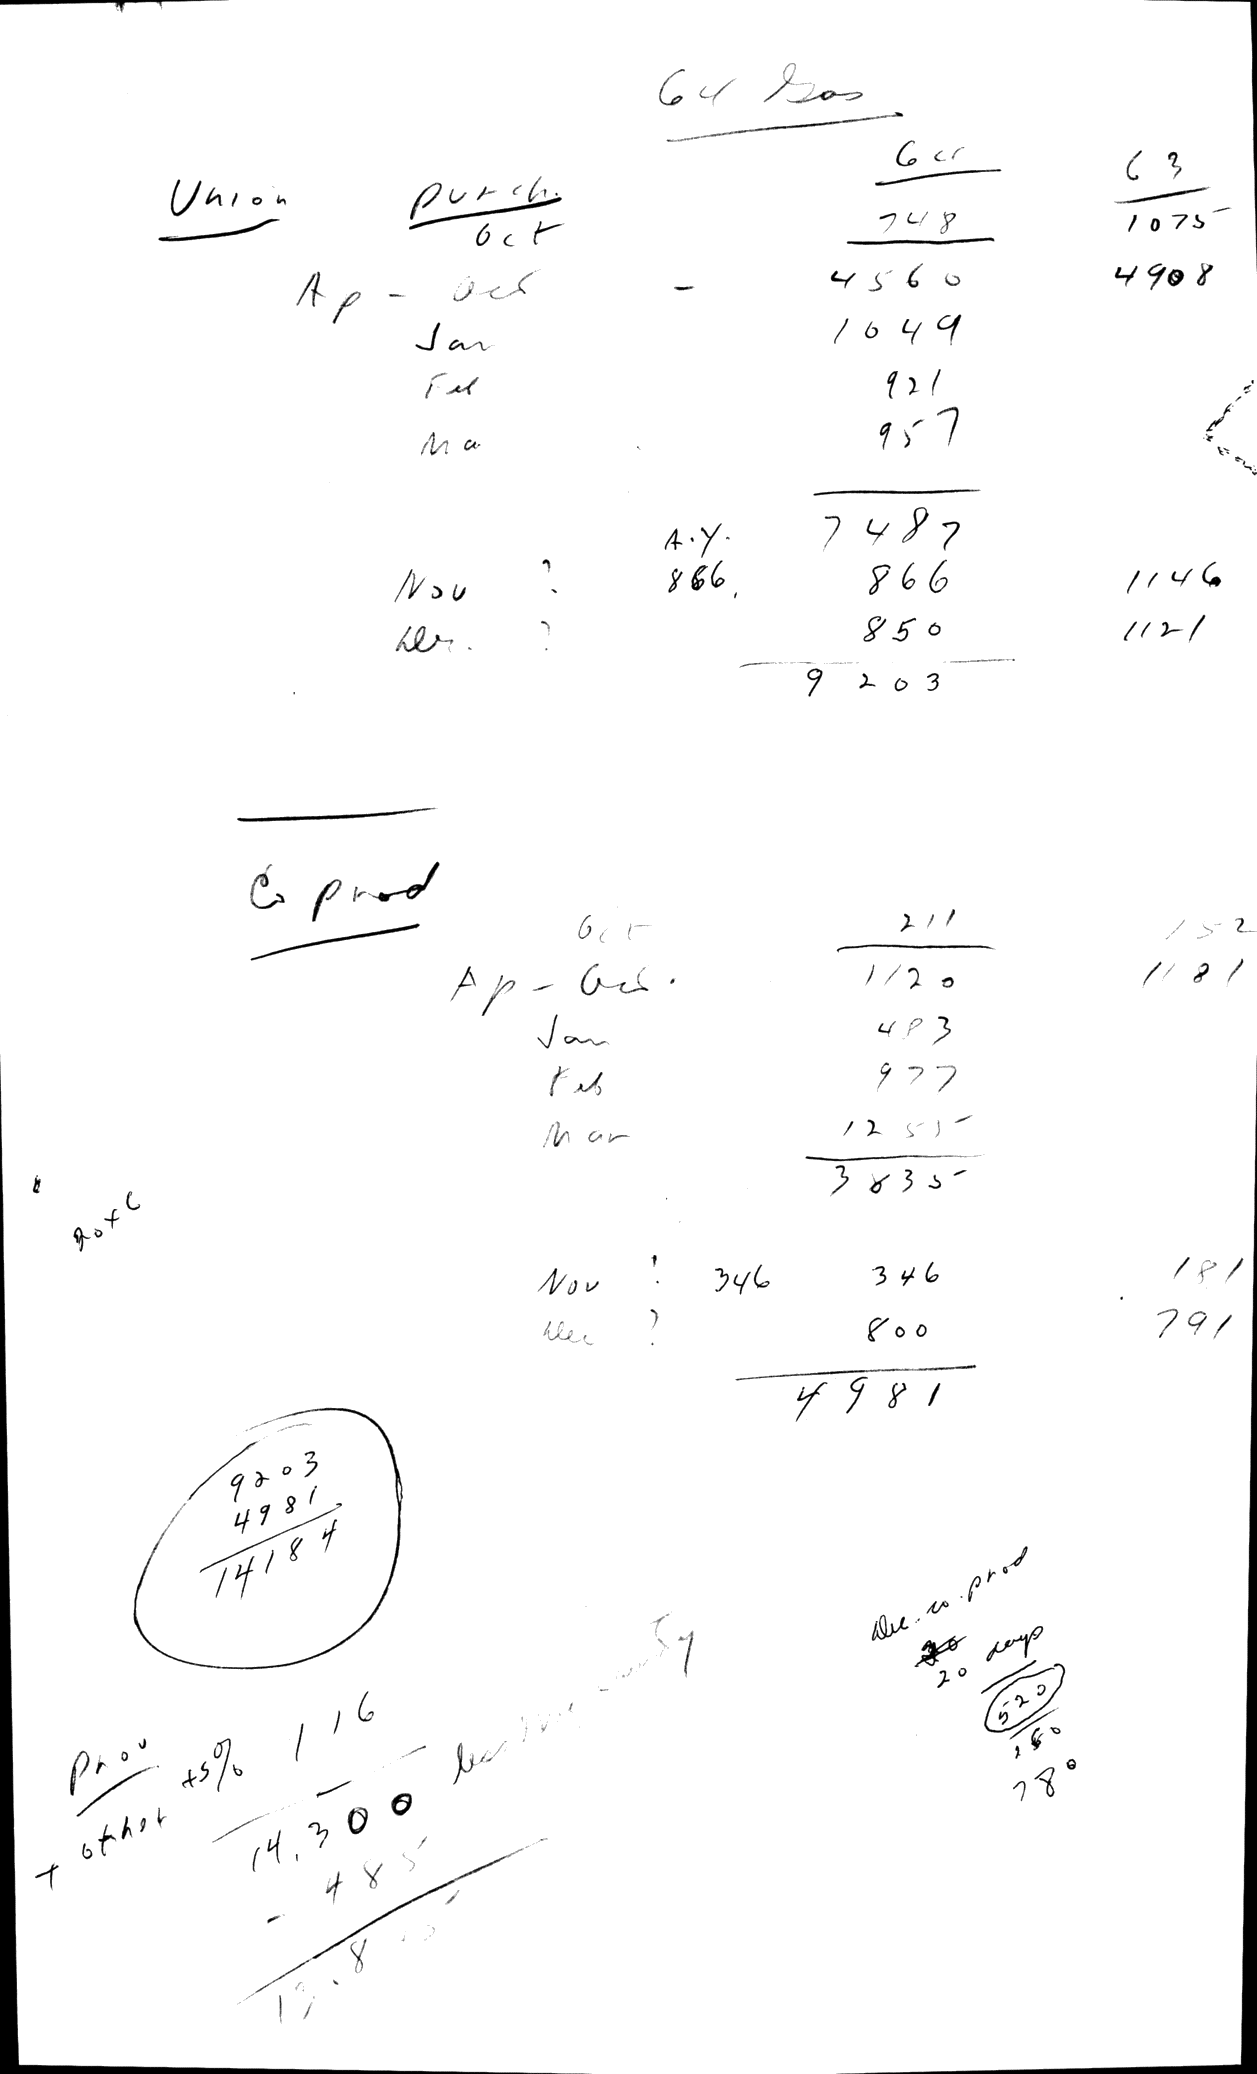 64 Gas
64 63
Union purch. 748 1075
Oct
Ap - Oct - 4560 4908
Jan 1049
Feb 921
Ma 957
7487
A.Y.
Nov ? 866. 866 1146
Dec. ? 850 1121
9203
Co prod
Oct 211 152
Ap - Oct. 1120 1181
Jan 483
Feb 977
Mar 1255
3835
20+6
Nov ! 346 346 181
Dec ? 800 791
4981
9203
4981
14184
Dec. co. prod
20 days
520
260
780
Prov +5% 116
+ other
14.300
- 485
13.8